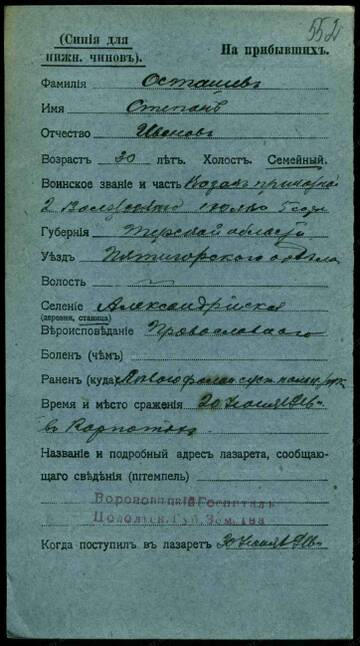 552
(Синія для
нижн. чиновъ).
На прибывшихъ.
Фамилія Осташевъ
Имя Степанъ
Отчество Ивановъ
Возрастъ 30 лѣтъ. Холостъ. Семейный.
Воинское званіе и часть Казакъ
2 полка
Губернія Терской области
Уѣздъ Пятигорского отдѣла
Волость
Селеніе Александрійская
(деревня, станица)
Вѣроисповѣданіе Православнаго
Боленъ (чѣмъ)
Раненъ (куда)
Время и мѣсто сраженія 20
въ Карпатахъ
Названіе и подробный адресъ лазарета, сообщаю-
щаго свѣдѣнія (штемпель)
Вороновицкій Госпиталь
Подольск. Губ. Земства
Когда поступилъ въ лазаретъ 30